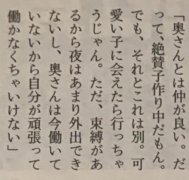 「奥さんとは仲が良い。だ
って、絶賛子作り中だもん。
でも、それとこれは別。可
愛い子に会えたら行っちゃ
うじゃん。ただ、束縛があ
るから夜はあまり外出でき
ないし、奥さんは今働いて
いないから自分が頑張って
働かなくちゃいけない」